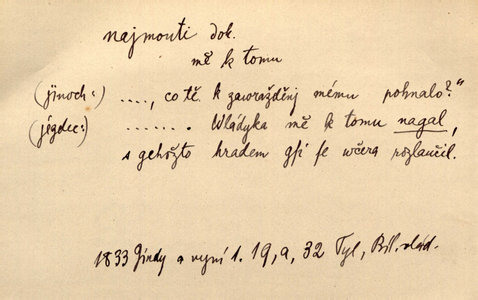 najmouti dok.
mě k tomu
(jinoch:) ...., co tě k zawražděnj mému pohnalo?"
(jézdec:) ....... Wládyka mě k tomu nagal,
s gehožto hradem gsi se wčera rozlaučil.
1833 Gindy a nynj 1. 19, a, 32 Tyl, Bíl. vlád.